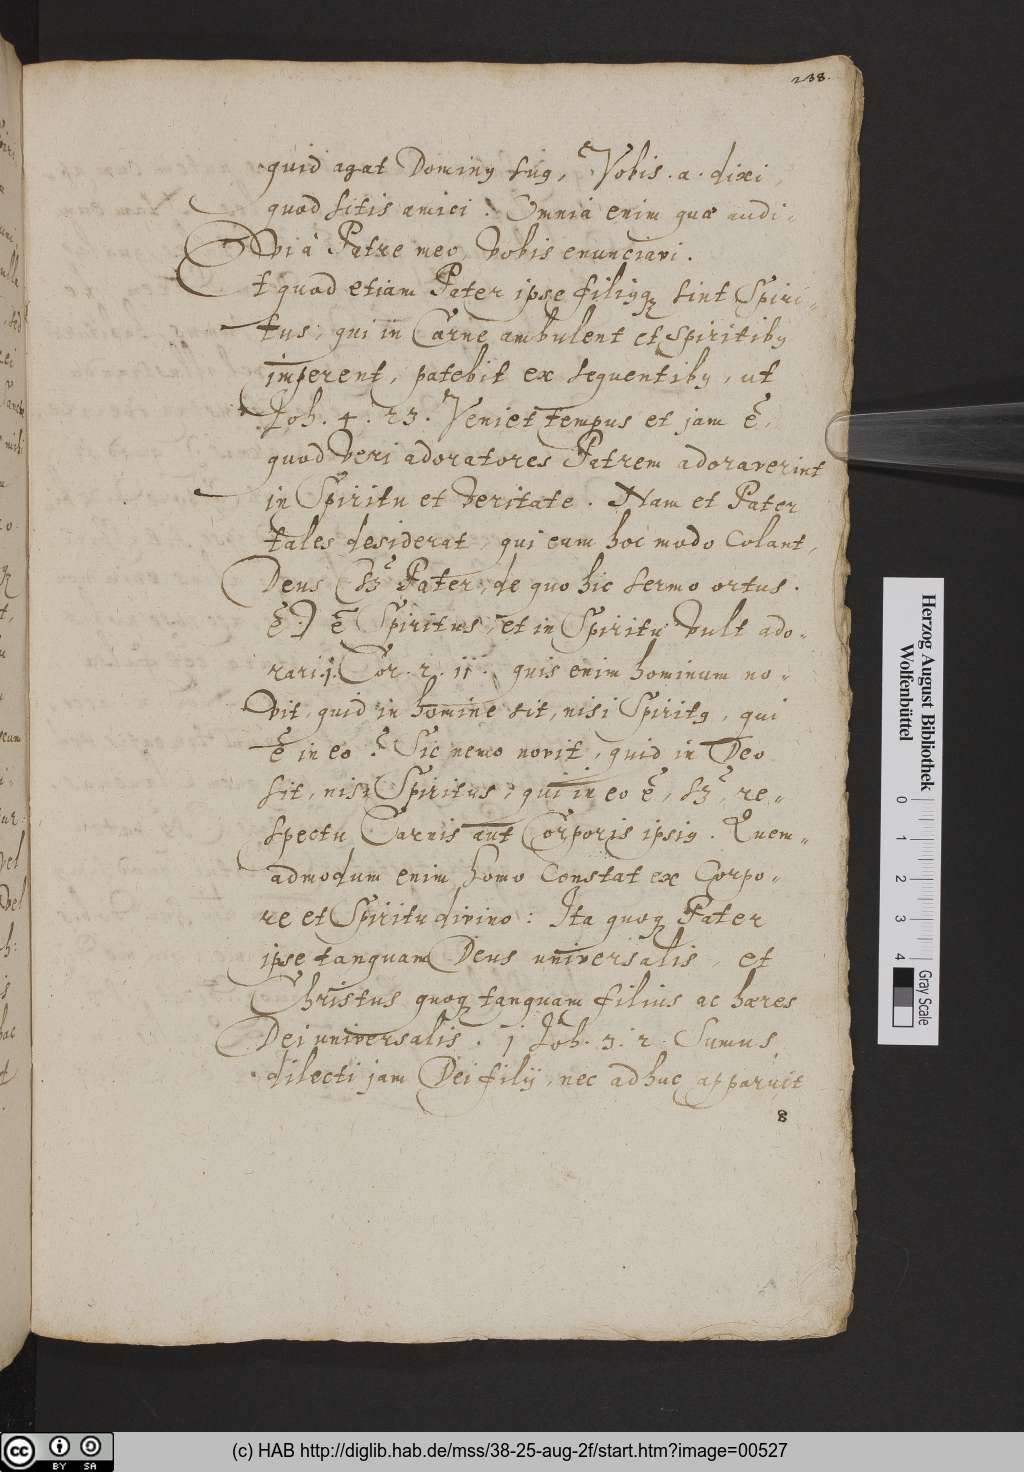 238.
quid agat Dominꝰ suꝰ, Vobis . a . dixi,
quod sitis amici . Omnia enim quæ audi-
vi à Patre meo, vobis enunciavi .
Et quod etiam Pater ipse filiꝰqꝫ sint Spiri-
tus, qui in Carne ambulent et spiritibꝰ
imperent, patebit ex sequentibꝰ, ut
Joh. 4 . 23 . Veniet tempus et jam ẽ,
quod veri adoratores Patrem adoraverint
in Spiritu et veritate . Nam et Pater
tales desiderat, qui eum hoc modo Colant,
Deus (sꝫ Pater, de quo hic sermo ortus .
ẽ .) ẽ Spiritus, et in Spiritu vult ado-
rari. j. Cor . 2 . 11 . quis enim hominum no-
vit, quid in homine sit, nisi Spiritꝰ, qui
ẽ in eo ? Sic nemo novit, quid in Deo
sit, nisi Spiritus, qui in eo ẽ, sꝫ, re-
spectu Carnis aut Corporis ipsiꝰ . Quem-
admodum enim homo Constat ex Corpo-
re et Spiritu divino : Ita quoqꝫ Pater
ipse tanquam Deus universalis, et
Christus quoqꝫ tanquam filius ac hæres
Dei universalis . j Joh. 3 . 2 . Sumus
dilecti jam Dei filij, nec adhuc apparuit
8
Herzog August Bibliothek
Wolfenbüttel
0 1 2 3 4
Gray Scale
cc BY SA
(c) HAB http://diglib.hab.de/mss/38-25-aug-2f/start.htm?image=00527